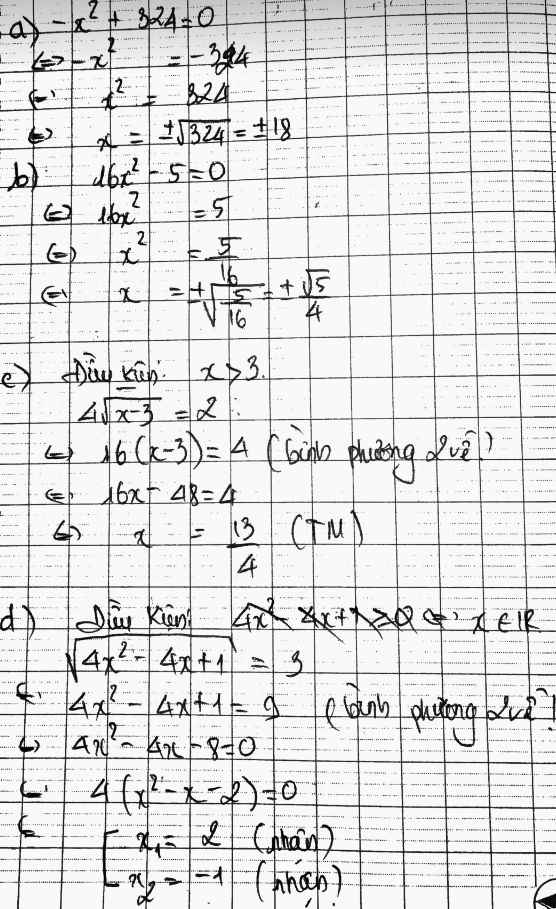 a) -x² + 324 = 0
⇔ -x² = -324
⇔ x² = 324
⇔ x = ±√324 = ±18
b) 16x² - 5 = 0
⇔ 16x² = 5
⇔ x² = 5/16
⇔ x = ±√(5/16) = ±√5/4
c) Điều kiện: x > 3.
4√(x-3) = 2
⇔ 16(x-3) = 4 (bình phương 2 vế)
⇔ 16x - 48 = 4
⇔ x = 13/4 (TM)
d) Điều kiện: 4x² - 4x + 1 ≥ 0 ⇔ x ∈ R
√(4x² - 4x + 1) = 3
⇔ 4x² - 4x + 1 = 9 (bình phương 2 vế)
⇔ 4x² - 4x - 8 = 0
⇔ 4(x² - x - 2) = 0
⇔ [ x₁ = 2 (nhận)
[ x₂ = -1 (nhận)